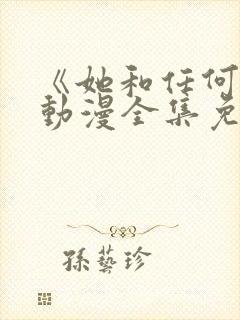 《她和任何
動漫全集免
孫藝珍